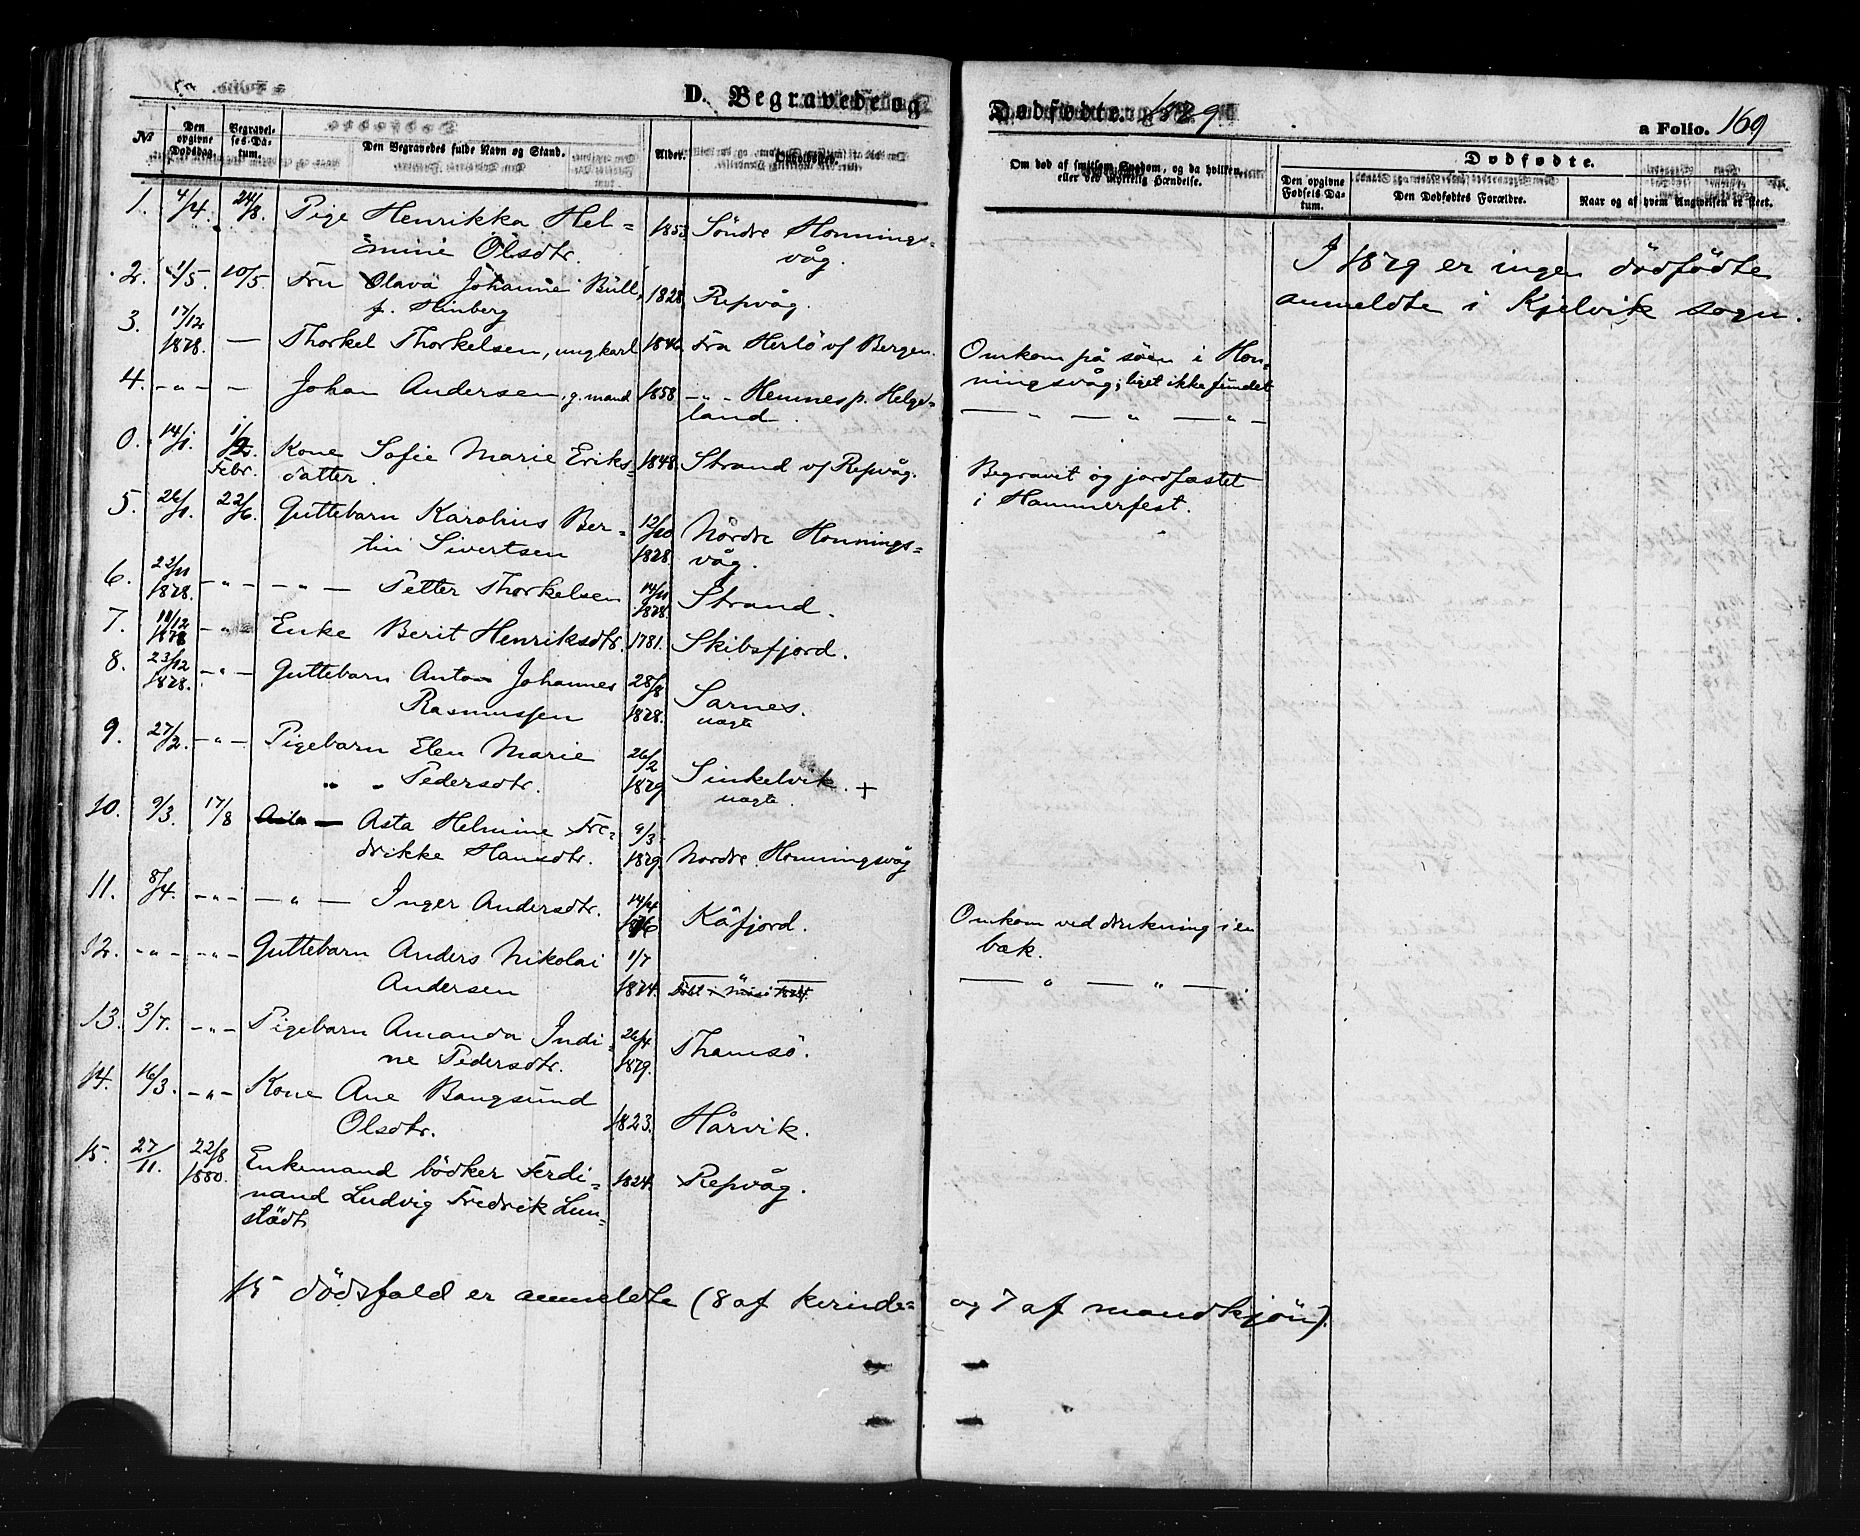 D. Begravede og Dødfødte. 1879
a Folio. 169
No
Den opgivne Dødsdag.
Begravelses-Datum.
Den Begravedes fulde Navn og Stand.
Alder.
Opholdssted.
Om død af smitsom Sygdom, og da hvilken, eller ved ulykkelig Hændelse.
Dødfødte.
Den opgivne Fødsels Datum.
Den Dødfødtes Forældre.
Naar og af hvem Angivelsen er skeet.
1. 4/4. 24/8. Pige Henrikka Hel= 1853 Söndre Honnings=
emine Olsdtr. våg.
I 1879 er ingen dödfödte
anmeldte i Kjelvik sogn.
2. 1/5. 10/5 Fru Olava Johanne Bull, 1828. Repvåg.
f. Hinberg
3. 17/12 1878. — Thorkel Thorkelsen, ungkarl 1846 Fra Herlö v/ Bergen. Omkom på söen i Hon=
ningsvåg; liget ikke fundet
4. — " — — Johan Andersen, g. mand 1858 — " — Hemnes p. Helge=
land. — " — " — " —
0. 14/1. 1/2 Febr. Kone Sofie Marie Eriks= 1848. Strand v/ Repvåg. Begravet og jordfæstet
datter. i Hammerfest.
5. 26/1. 22/6. Guttebarn Karolius Ber= 12/10 1878 Nördre Honnings=
tin Sivertsen våg.
6. 22/11 1878. — " — — " — Petter Thorkelsen 14/11 1878. Strand.
7. 18/12 1878 — " — Enke Berit Henriksdtr. 1781. Skibsfjord.
8. 23/12 1878. — " — Guttebarn Anton Johannes 28/8 1878. Sarnes.
Rasmussen uægte
9. 27/2. — " — Pigebarn Elen Marie 26/2 1879 Sinkelvik. +
" " Pedersdtr. uægte.
10. 9/3. 17/8 Asta — Asta Helmine Fre= 9/3 1879. Nordre Honningsvåg
drikke Hansdtr.
11. 8/4. — " — — " — Inger Andersdtr. 14/4 1876 Kåfjord. Omkom ved drukning i en
bæk.
12. — " — — " — Guttebarn Anders Nikolai 1/7 1874.
Andersen — " — " —
13. 3/7. — " — Pigebarn Amanda Indi= 26/4 1879. Thamsö.
ne Pedersdtr.
14. 16/3. — " — Kone Ane Bangsund 1823. Hårvik.
Olsdtr.
15. 27/11. 22/8 1880. Enkemand bödker Ferdi= 1824. Repvåg.
nand Ludvig Fredrik Lun=
städt
15 dödsfald er anmeldte (8 af kvinde= og 7 af mandkjön).